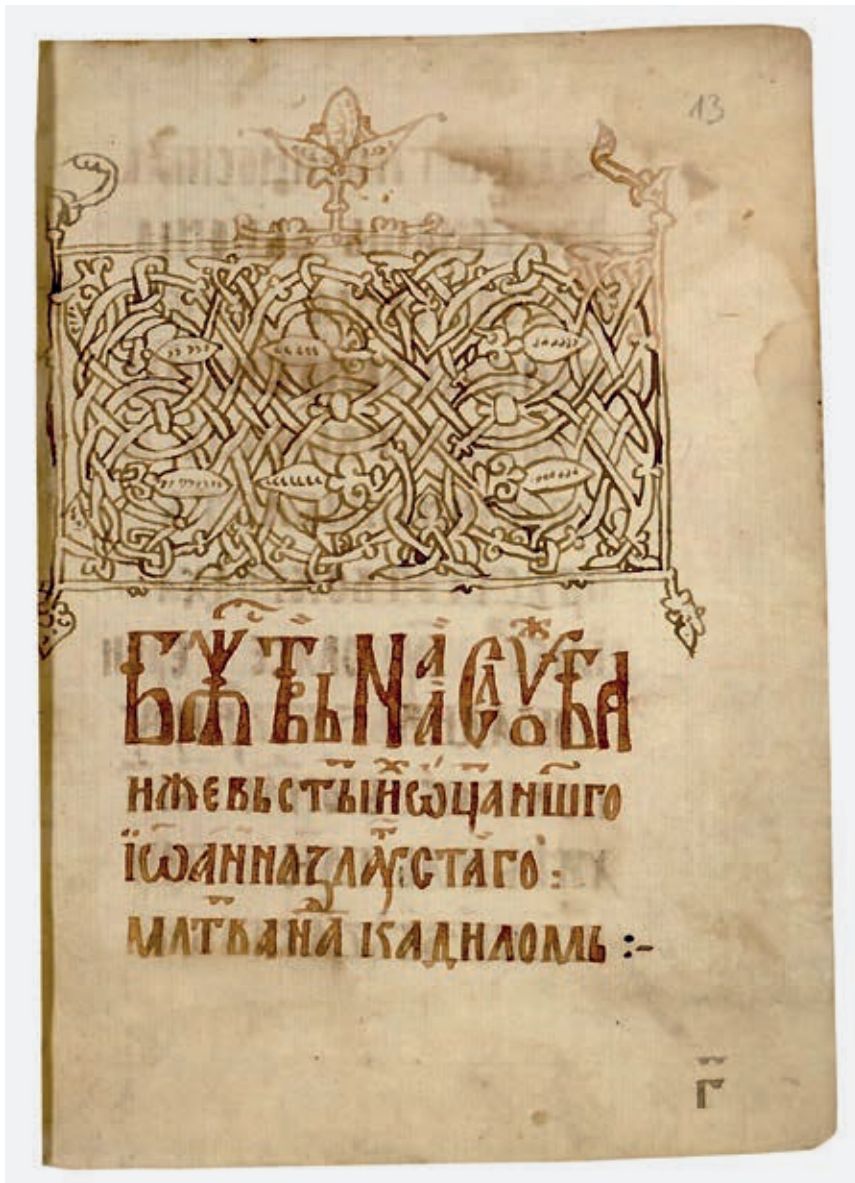 13
БЖ҃ТВЬНАА СЛꙊ҃ЖБА
ИЖЕ ВЬ СТ҃ЫИХ Ѡ҃ЦА НШ҃ГО
ІѠАННА ЗЛАꙊСТАГО :
МЛТ҃ВА НА КАДИЛОМЬ :-
Г҃